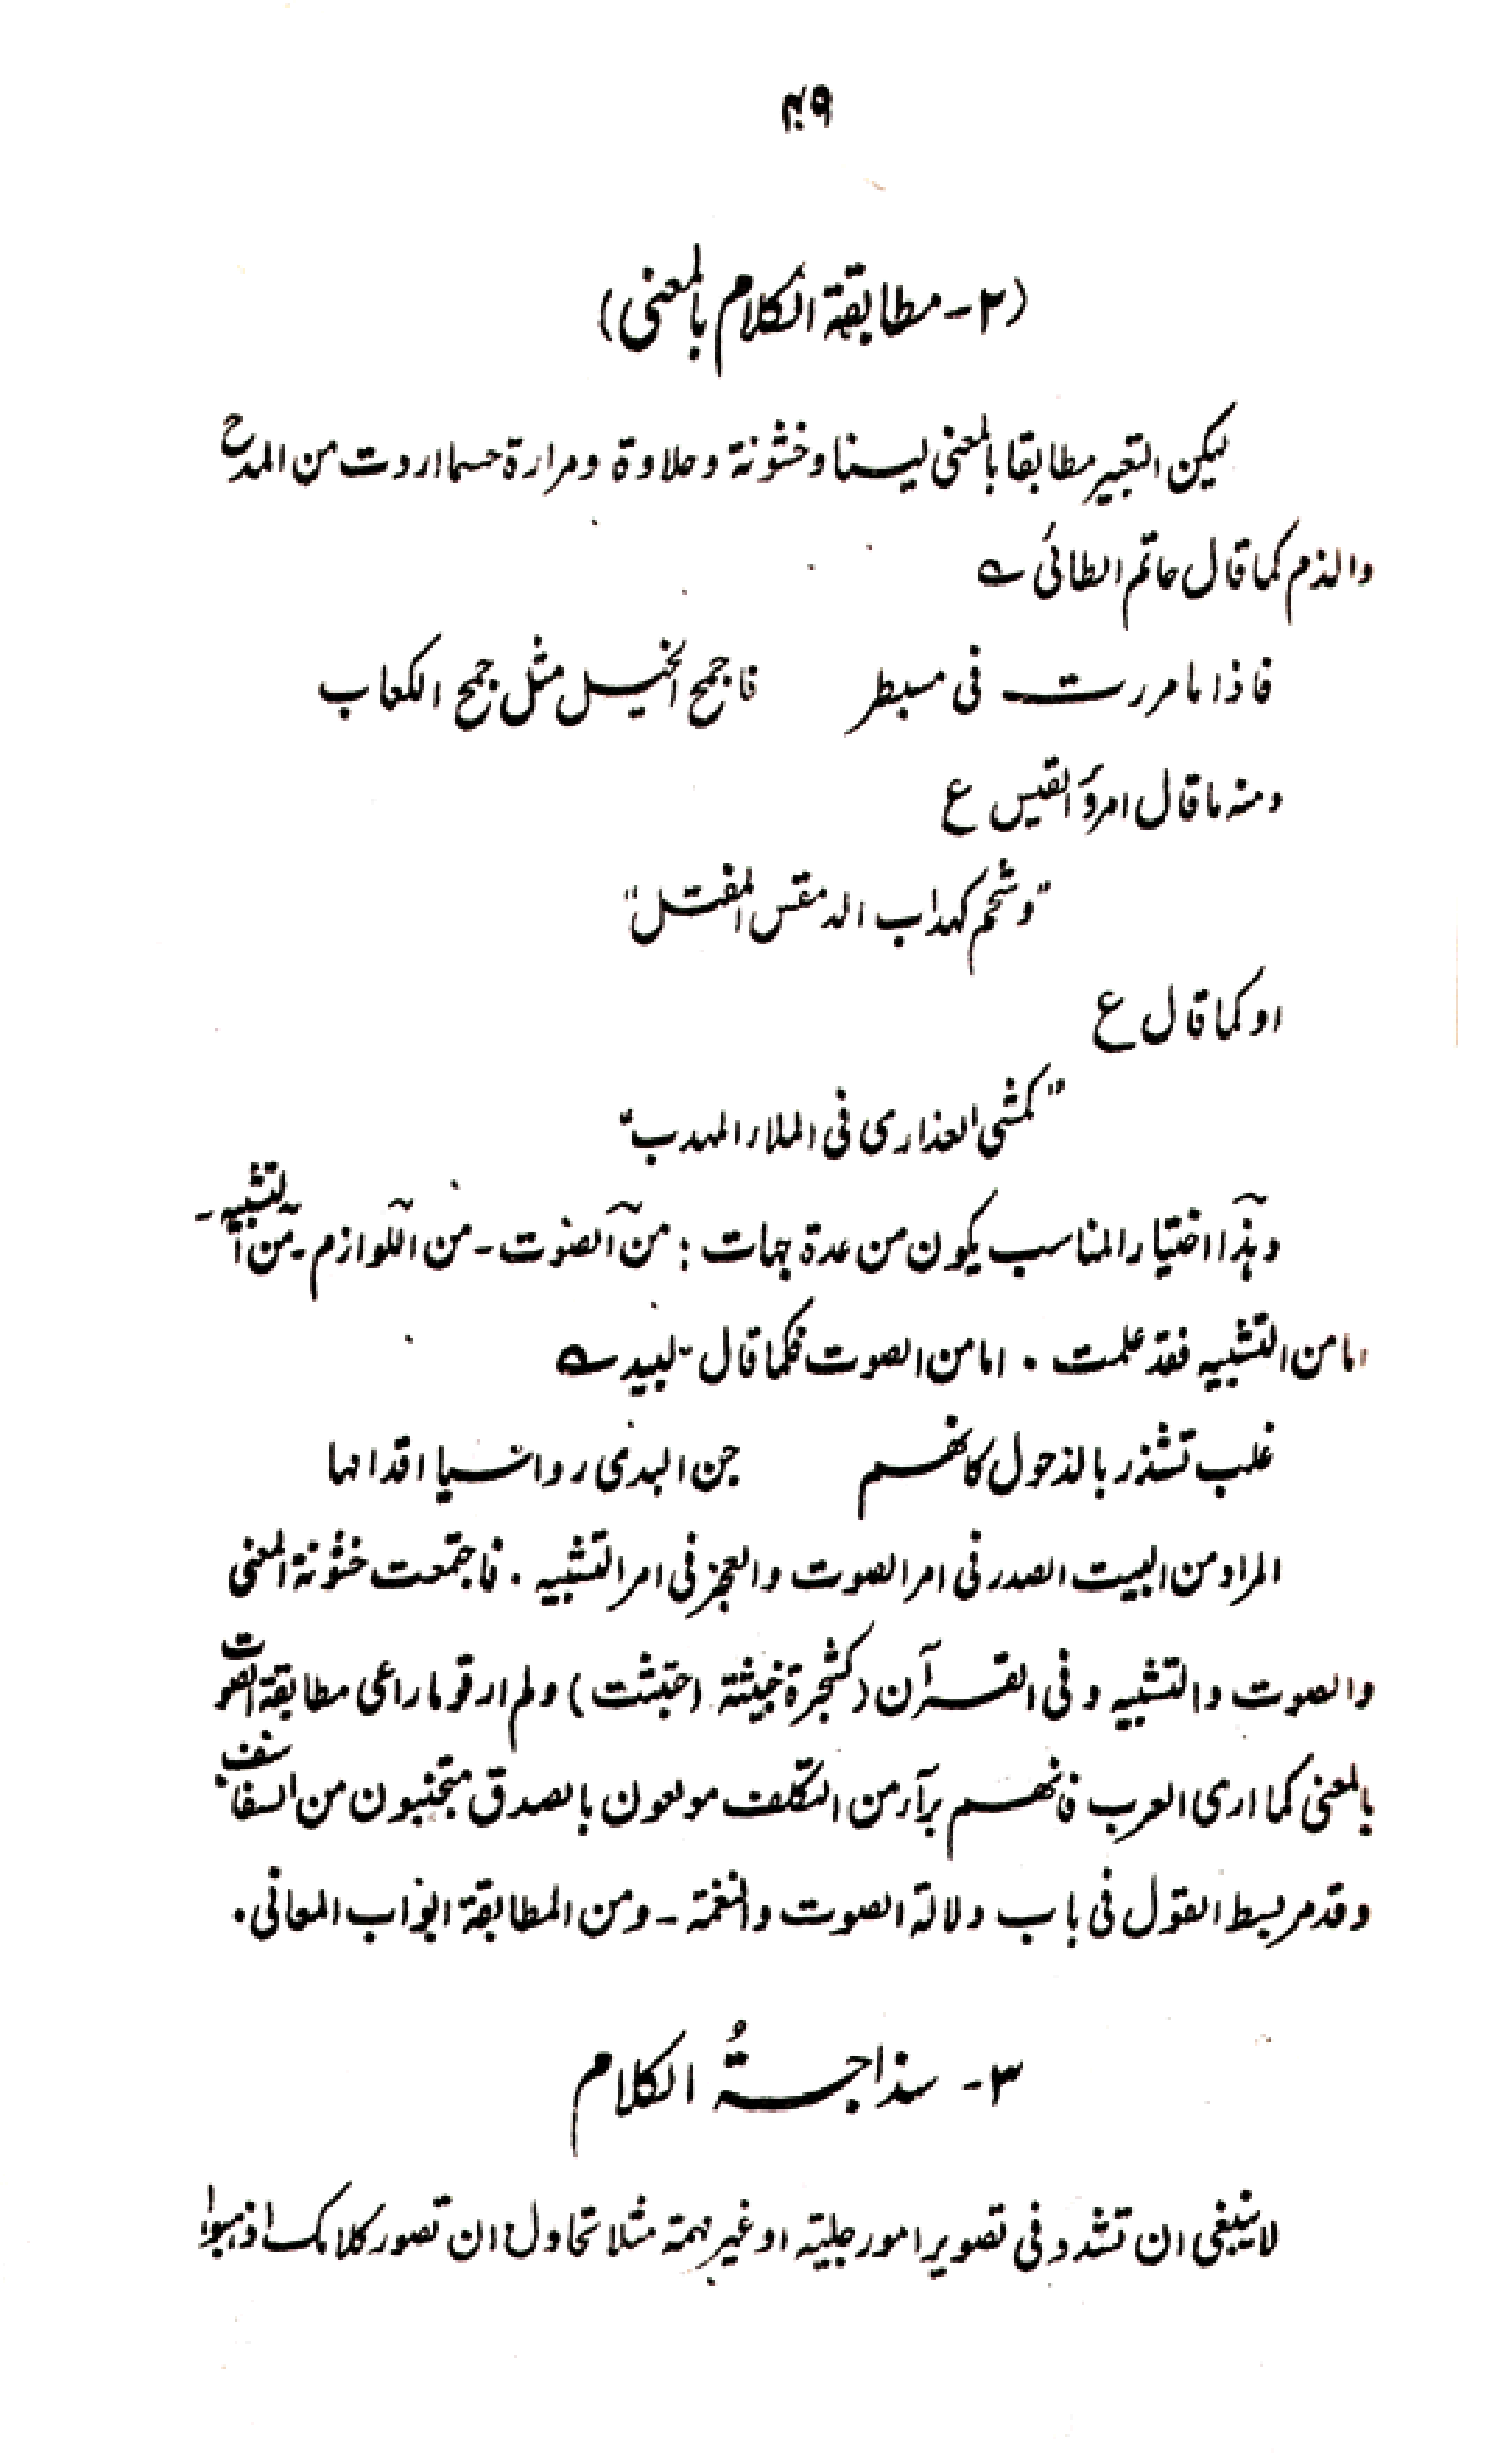 ۴۹
(۲ - مطابقة الكلام بالمعنى)
ليكن التعبير مطابقا بالمعنى لينا وخشونة وحلاوة ومرارة حسما اردت من المدح
والذم كما قال حاتم الطائى ؎
فاذا ما مررت فى مسبطر فاجمح الخيل مثل جمح الكعاب
ومنه ما قال امرؤ القيس ع
"وشحم كهداب الدمقس المفتل"
او كما قال ع
"كمشى العذارى فى الملاء المهدب"
وهذا اختيار المناسب يكون من عدة جهات : من الصوت - من اللوازم - من التشبيه -
اما من التشبيه فقد علمت . اما من الصوت فكما قال لبيد ؎
غلب تشذر بالذحول كانهم جن البدى رواسيا اقدامها
المراد من البيت الصدر فى امر الصوت والعجز فى امر التشبيه . فاجتمعت خشونة المعنى
والصوت والتشبيه وفى القرآن (كشجرة خبيثة اجتثت) ولم ار قوما راعى مطابقة الصوت
بالمعنى كما ارى العرب فانهم برآء من التكلف مولعون بالصدق متجنبون من السفاسف
وقد مر بسط القول فى باب دلالة الصوت والنغمة - ومن المطابقة ابواب المعانى .
۳ - سذاجةُ الكلام
لا ينبغى ان تشدد فى تصوير امور جلية او غير مهمة مثلا تحاول ان تصور كلامك اذهبوا